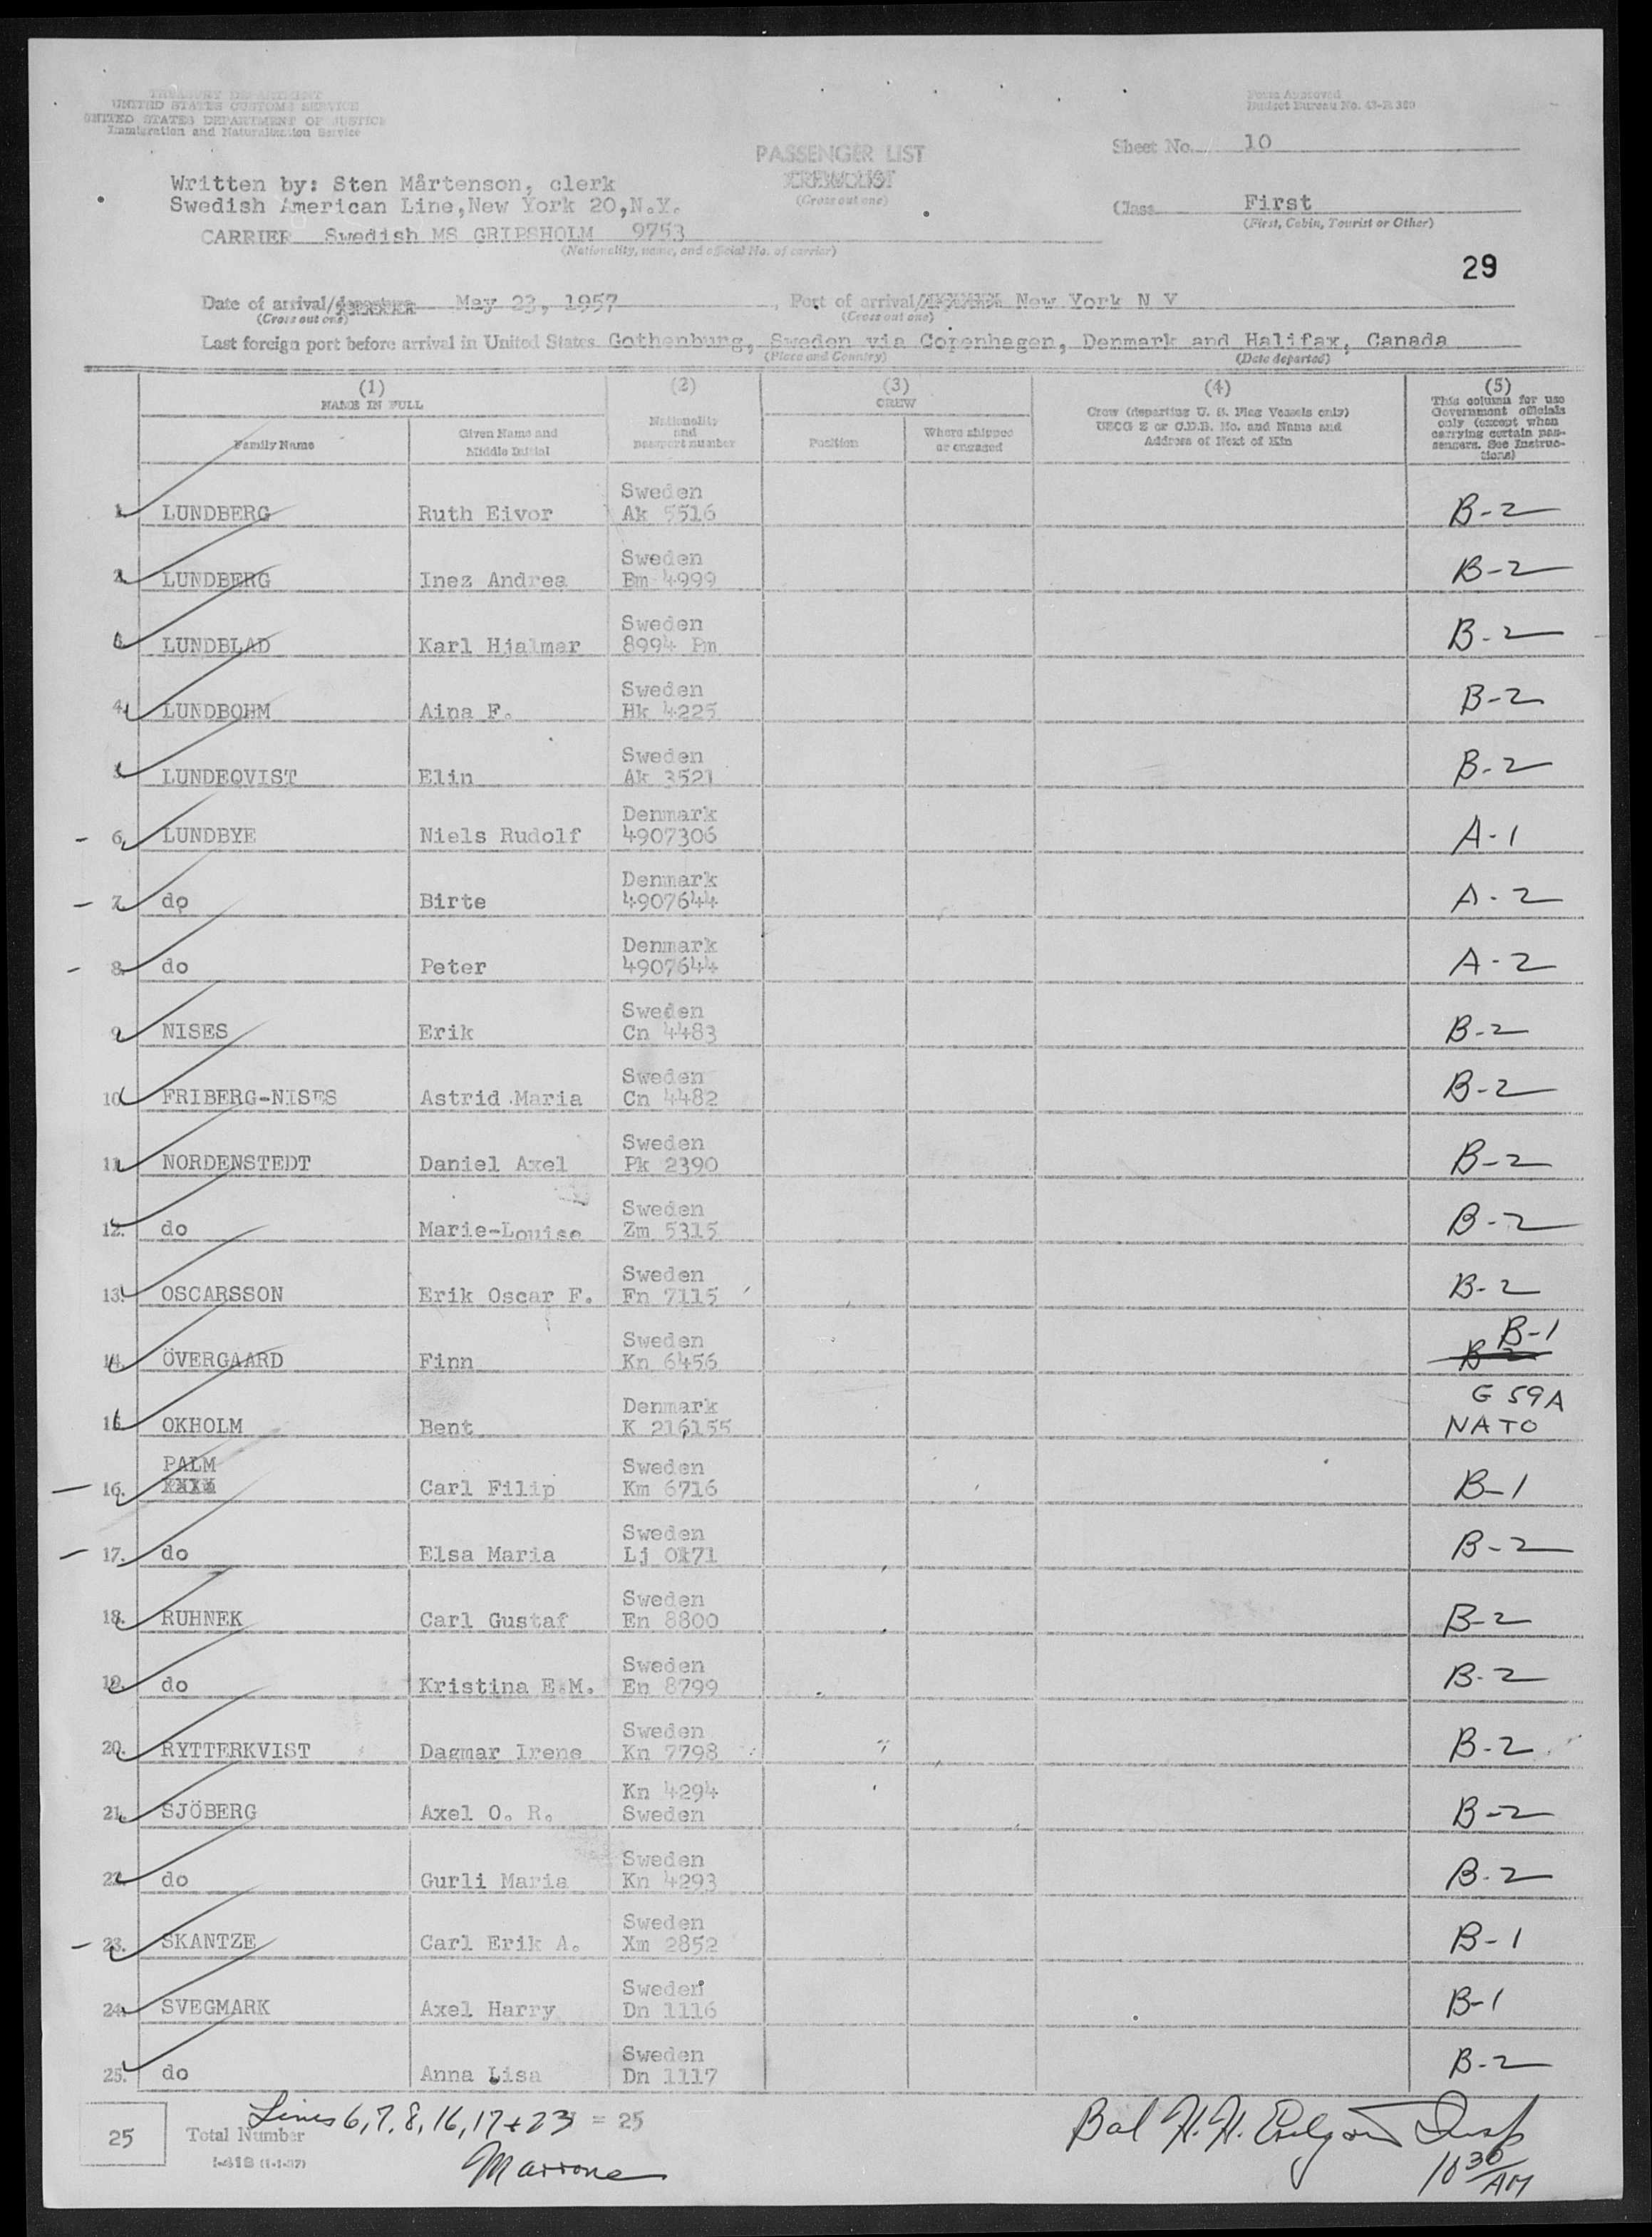 TREASURY DEPARTMENT
UNITED STATES CUSTOMS SERVICE
UNITED STATES DEPARTMENT OF JUSTICE
Immigration and Naturalization Service
Form Approved
Budget Bureau No. 43-R 380
PASSENGER LIST
CREW LIST
(Cross out one)
Sheet No. 10
Written by: Sten Mårtenson, clerk
Swedish American Line, New York 20, N.Y.
Class First
(First, Cabin, Tourist or Other)
CARRIER Swedish MS GRIPSHOLM 9753
(Nationality, name, and official No. of carrier)
29
Date of arrival/departure May 23, 1957, Port of arrival/ New York N Y
(Cross out one) (Cross out one)
Last foreign port before arrival in United States Gothenburg, Sweden via Copenhagen, Denmark and Halifax, Canada
(Place and Country) (Date departed)
(1) (2) (3) (4) (5)
NAME IN FULL
Family Name
Given Name and Middle Initial
Nationality and passport number
CREW
Position
Where shipped or engaged
Crew (departing U. S. Flag Vessels only)
USCG Z or C.D.B. No. and Name and
Address of Next of Kin
This column for use
Government officials
only (except when
carrying certain pas-
sengers. See Instruc-
tions)
1. LUNDBERG Ruth Eivor Sweden Ak 5516 B-2
2. LUNDBERG Inez Andrea Sweden Bm 4999 B-2
3. LUNDBLAD Karl Hjalmar Sweden 8994 Pm B-2
4. LUNDBOHM Aina F. Sweden Hk 4225 B-2
5. LUNDEQVIST Elin Sweden Ak 3521 B-2
6. LUNDBYE Niels Rudolf Denmark 4907306 A-1
7. do Birte Denmark 4907644 A-2
8. do Peter Denmark 4907644 A-2
9. NISES Erik Sweden Cn 4483 B-2
10. FRIBERG-NISES Astrid Maria Sweden Cn 4482 B-2
11. NORDENSTEDT Daniel Axel Sweden Pk 2390 B-2
12. do Marie-Louise Sweden Zm 5315 B-2
13. OSCARSSON Erik Oscar F. Sweden Fn 7115 B-2
14. ÖVERGAARD Finn Sweden Kn 6456 B-1 B-2
15. OKHOLM Bent Denmark K 216155 G 59A NATO
16. PALM Carl Filip Sweden Km 6716 B-1
17. do Elsa Maria Sweden Lj 0171 B-2
18. RUHNEK Carl Gustaf Sweden En 8800 B-2
19. do Kristina E.M. Sweden En 8799 B-2
20. RYTTERKVIST Dagmar Irene Sweden Kn 7798 B-2
21. SJÖBERG Axel O. R. Kn 4294 Sweden B-2
22. do Gurli Maria Sweden Kn 4293 B-2
23. SKANTZE Carl Erik A. Sweden Xm 2852 B-1
24. SVEGMARK Axel Harry Sweden Dn 1116 B-1
25. do Anna Lisa Sweden Dn 1117 B-2
Lines 6, 7, 8, 16, 17 + 23 = 25
25 Total Number
I-418 (1-1-57)
Marrone
Bal H. H. Insp
10 30 AM